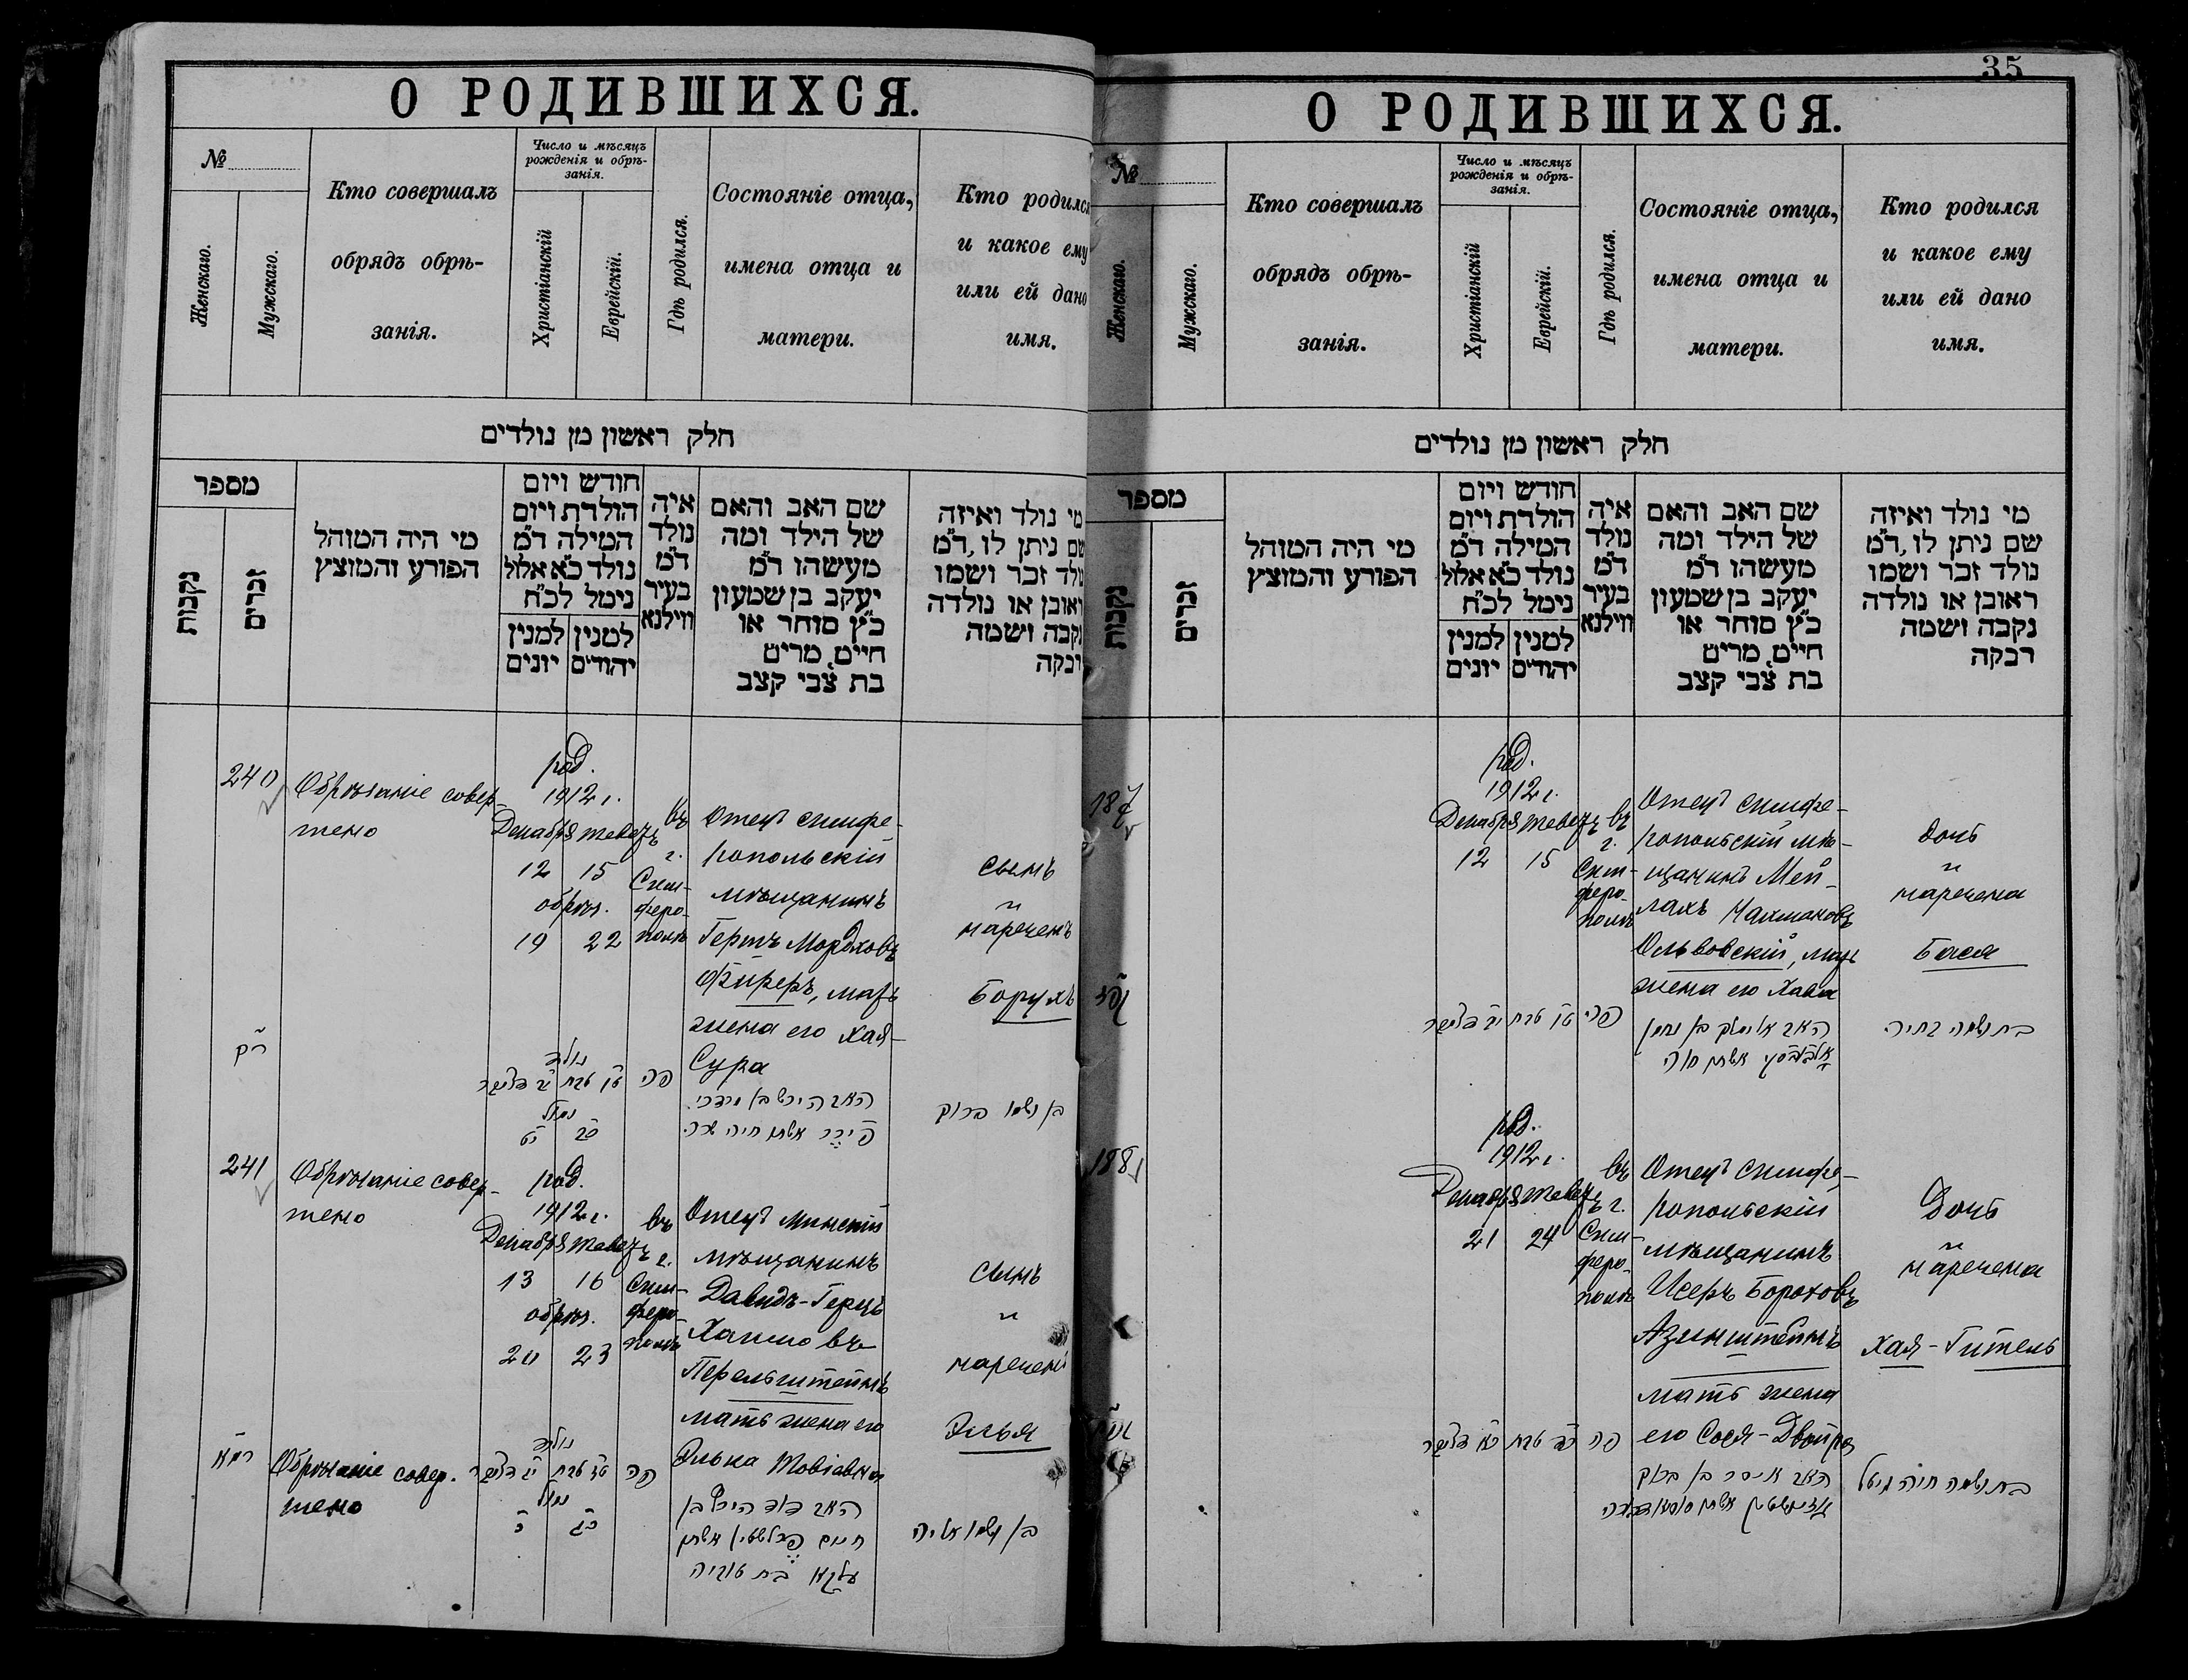 О РОДИВШИХСЯ.
№
Женскаго.
Мужскаго.
Кто совершалъ
обрядъ обрѣ-
занія.
Число и мѣсяцъ
рожденія и обрѣ-
занія.
Христіанскій
Еврейскій.
Гдѣ родился.
Состояніе отца,
имена отца и
матери.
Кто родился
и какое ему
или ей дано
имя.
חלק ראשון מן נולדים
מספר
נקבות
זכרים
מי היה המוהל
הפורע והמוצץ
חודש ויום
הולדת ויום
המילה ד״מ
נולד כ״א אלול
נימל לכ״ח
למנין יהודים
למנין יונים
איה
נולד
ד״מ
בעיר
ווילנא
שם האב והאם
של הילד ומה
מעשהו ד״מ
יעקב בן שמעון
כ״ץ סוחר או
חייט, מרים
בת צבי קצב
מי נולד ואיזה
שם ניתן לו, ד״מ
נולד זכר ושמו
ראובן או נולדה
נקבה ושמה
רבקה
240
Обрѣзаніе совер-
шено
род.
1912 г.
Декабря Тевезъ
12 15
обрѣз.
19 22
въ
г.
Сим-
феро-
полѣ
Отецъ симфе-
ропольскій
мѣщанинъ
Гершъ Мордховъ
Фиреръ, мать
жена его Хая-
Сура
сынъ
и
нареченъ
Борухъ
ר״מ
נולד
ט״ו טבת י״ב דצמבר
נמול
כ״ב י״ט
פה
האב הירש בן מרדכי
פירר אשתו חיה שרה
בן ושמו ברוך
241
Обрѣзаніе совер-
шено
род.
1912 г.
Декабря Тевезъ
13 16
обрѣз.
20 23
въ
г.
Сим-
феро-
полѣ
Отецъ Минскій
мѣщанинъ
Давидъ-Герцъ
Хаимовъ
Перельштейнъ
мать жена его
Элька Товіавна
сынъ
и
нареченъ
Элья
רמ״א
Обрѣзаніе совер-
шено
נולד
ט״ז טבת י״ג דצמבר
נמול
כ״ג כ׳
פה
האב דוד הירץ בן
חיים פרלשטיין אשתו
עלקא בת טוביה
בן ושמו אליה
35
О РОДИВШИХСЯ.
№
Женскаго.
Мужскаго.
Кто совершалъ
обрядъ обрѣ-
занія.
Число и мѣсяцъ
рожденія и обрѣ-
занія.
Христіанскій
Еврейскій.
Гдѣ родился.
Состояніе отца,
имена отца и
матери.
Кто родился
и какое ему
или ей дано
имя.
חלק ראשון מן נולדים
מספר
נקבות
זכרים
מי היה המוהל
הפורע והמוצץ
חודש ויום
הולדת ויום
המילה ד״מ
נולד כ״א אלול
נימל לכ״ח
למנין יהודים
למנין יונים
איה
נולד
ד״מ
בעיר
ווילנא
שם האב והאם
של הילד ומה
מעשהו ד״מ
יעקב בן שמעון
כ״ץ סוחר או
חייט, מרים
בת צבי קצב
מי נולד ואיזה
שם ניתן לו, ד״מ
נולד זכר ושמו
ראובן או נולדה
נקבה ושמה
רבקה
187
род.
1912 г.
Декабря Тевезъ
12 15
въ
г.
Сим-
феро-
полѣ
Отецъ симфе-
ропольскій мѣ-
щанинъ Мей-
лахъ Нахмановъ
Ольвовскій, мать
жена его Хава
дочь
и
наречена
Бася
קפ״ז
ט״ו טבת י״ב דצמבר
פה
האב אלימלך בן נחמן
אשתו חוה
בת ושמה בתיה
188
род.
1912 г.
Декабря Тевезъ
21 24
въ
г.
Сим-
феро-
полѣ
Отецъ симфе-
ропольскій
мѣщанинъ
Исеръ Бороховъ
Азинштейнъ
мать жена
его Сося-Двойра
Дочь
и
наречена
Хая-Гитель
קפ״ח
כ״ד טבת כ״א דצמבר
פה
האב איסר בן ברוך
אזינשטיין אשתו סאסא דבורה
בת ושמה חיה גיטל